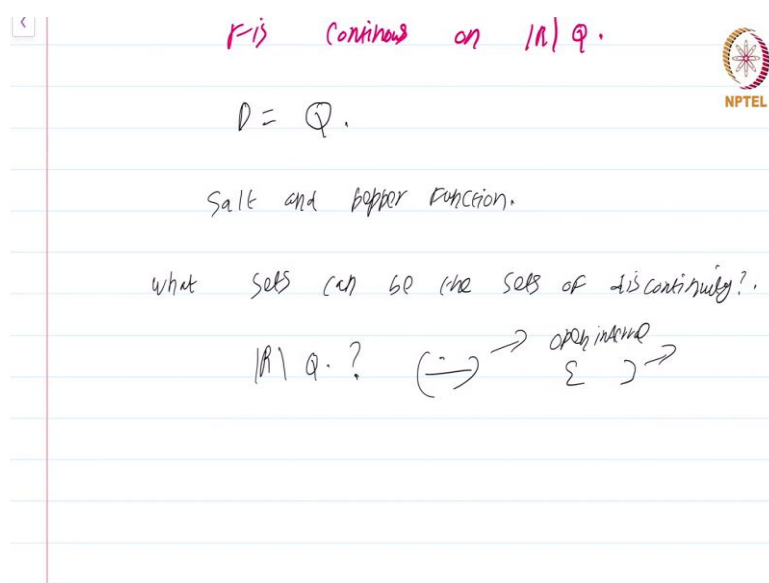 F is continous on |R\Q.
NPTEL
D = Q.
Salt and pepper function.
what sets can be the sets of discontinuity?.
|R\ Q. ? ( ) → open interval
{ } →